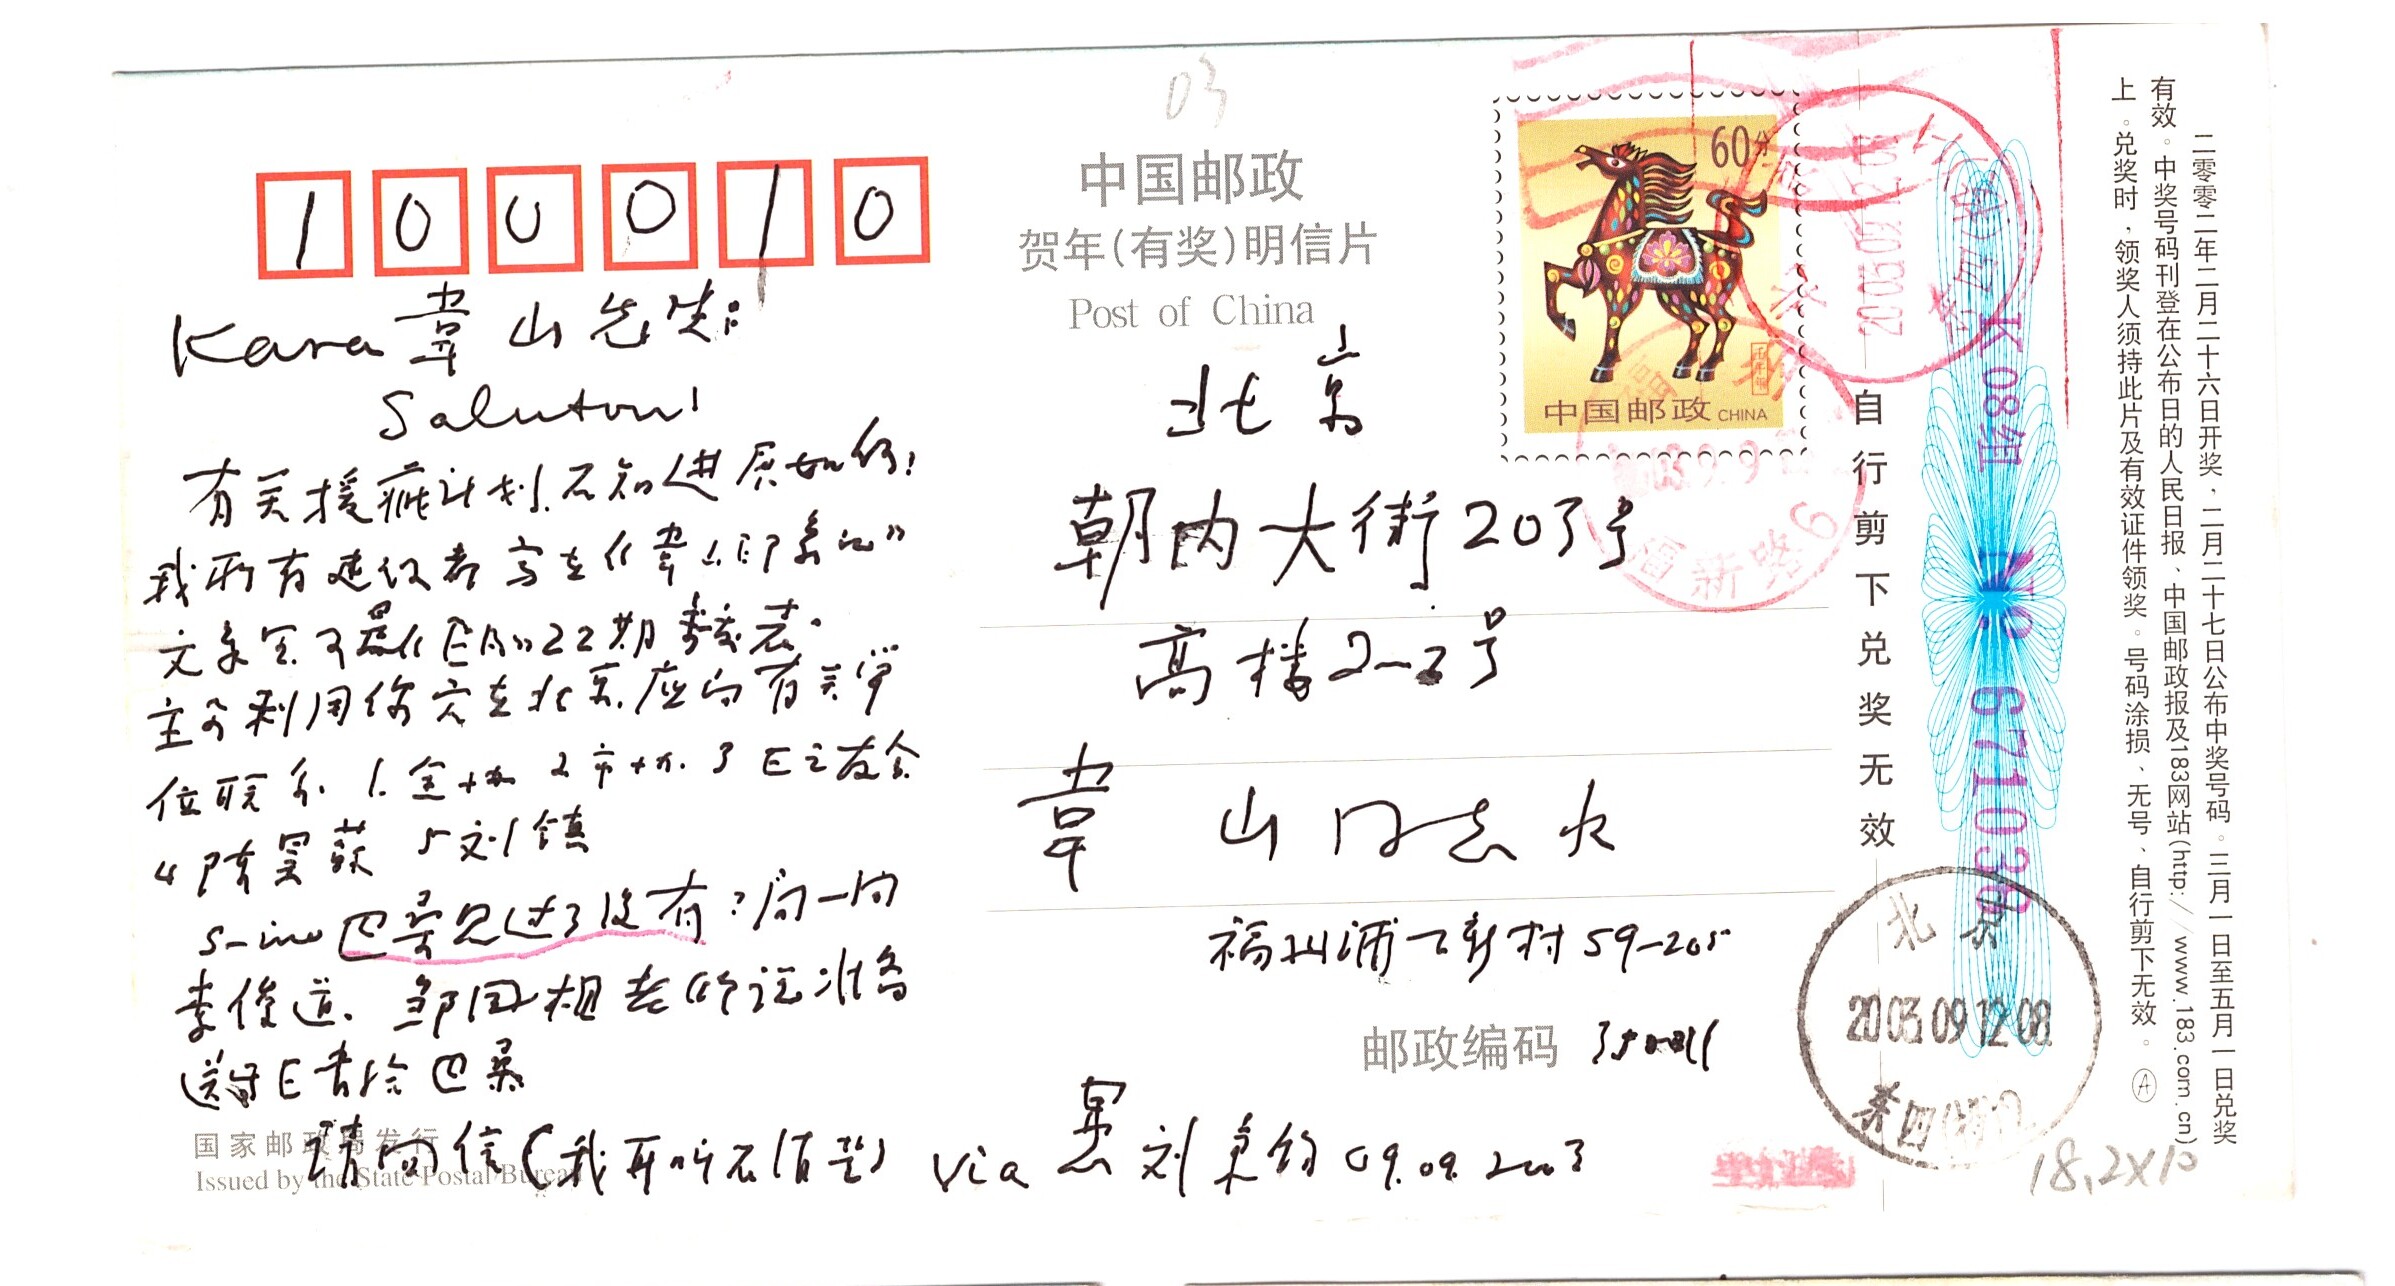 03
100010
中国邮政
贺年(有奖)明信片
Post of China
60分
中国邮政 CHINA
Kara 韋山先生:
Saluton!
有关援疏计划.不知进展如何!
我所有建议都写在《韋山印象记》
主 利用你家在北京.应向有关单
位联系 1.全 2市 3 E之友会
4 陈昊蘇 5 刘镇
s-ino 巴桑见过了没有?问一问
李俊道. 邹国相 准备
送 E书给巴桑
请回信(我耳听不 ) via 愚 刘 钧 09.09.2003
北京
朝内大街203号
高楼2-2号
韋山同志收
福州浦下新村59-205
邮政编码 350011
国家邮政局发行
Issued by the State Postal Bureau
自行剪下兑奖无效
K 08组 No 671036
二零零二年二月二十六日开奖、二月二十七日公布中奖号码。三月一日至五月一日兑奖
有效。中奖号码刊登在公布日的人民日报、中国邮政报及183网站(http://www.183.com.cn)
上。兑奖时,领奖人须持此片及有效证件领奖。号码涂损、无号、自行剪下无效。 Ⓐ
北京
2003.09.12.08
18.2×10